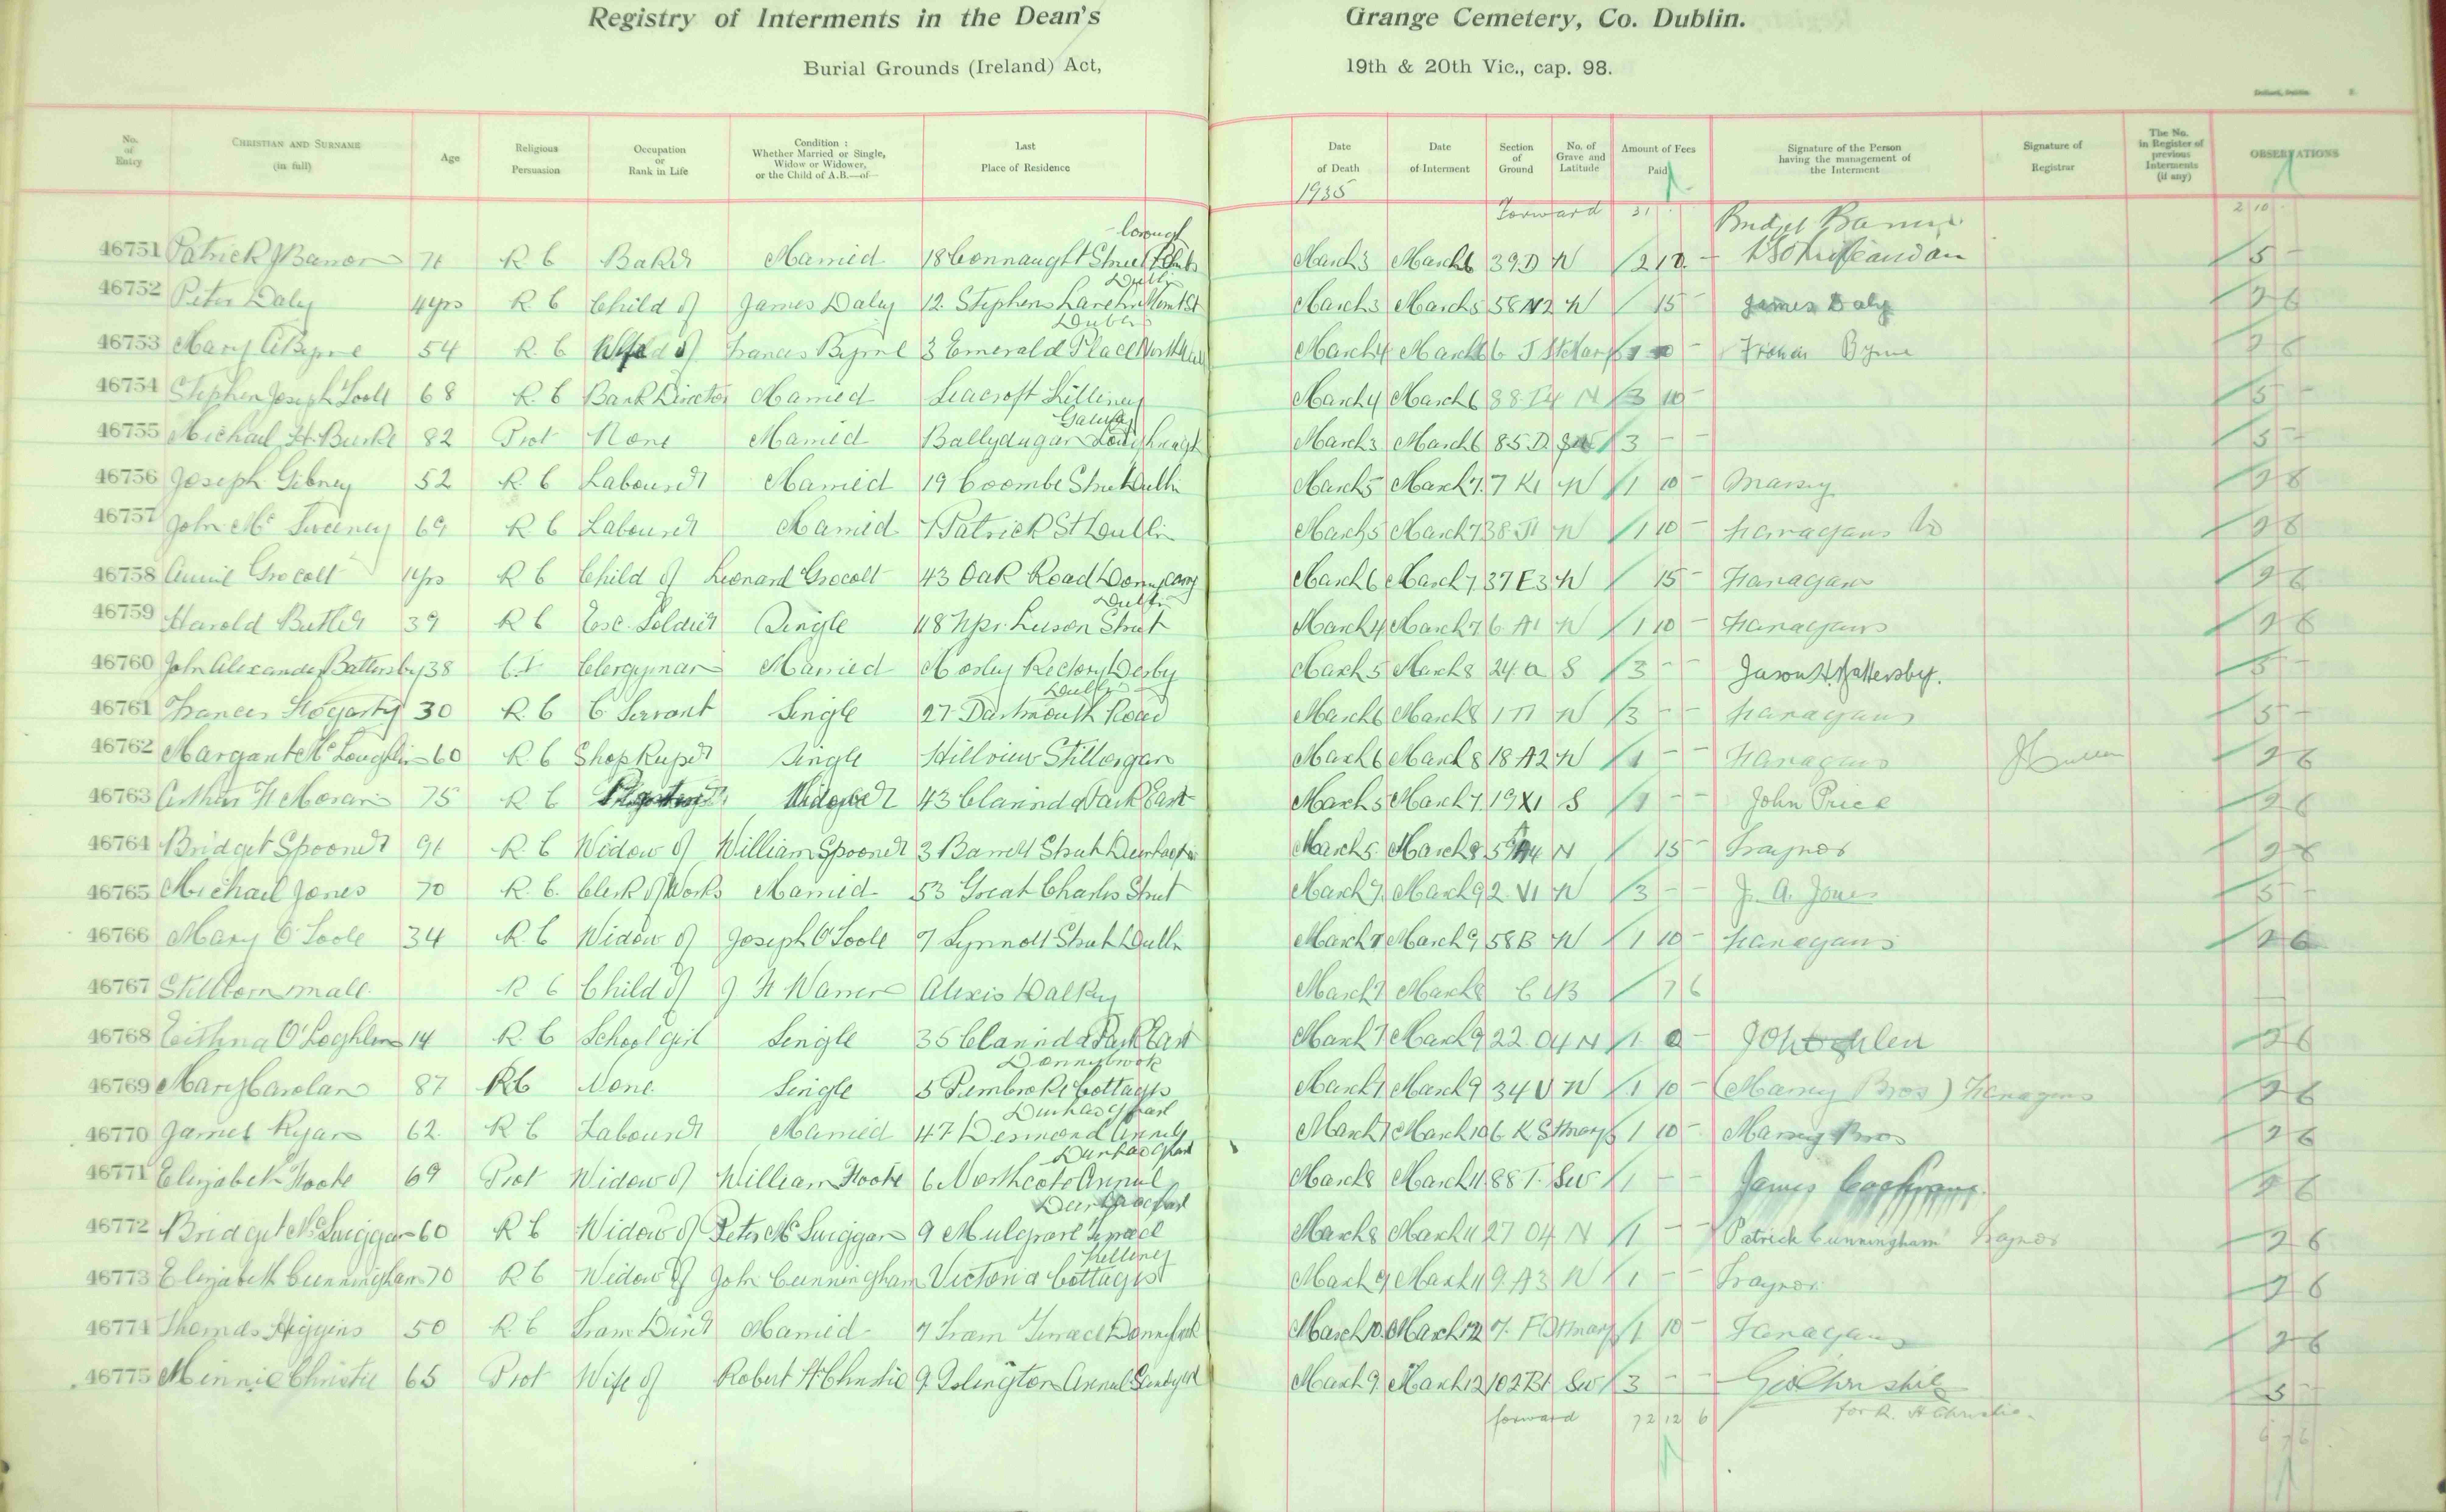 Registry of Interments in the Dean's Grange Cemetery, Co. Dublin.
Burial Grounds (Ireland) Act, 19th & 20th Vic., cap. 98.
No. of Entry CHRISTIAN AND SURNAME (in full) Age Religious Persuasion Occupation or Rank in Life Condition: Whether Married or Single, Widow or Widower, or the Child of A.B.—of— Last Place of Residence Date of Death Date of Interment Section of Ground No. of Grave and Latitude Amount of Fees Paid Signature of the Person having the management of the Interment Signature of Registrar The No. in Register of previous Interments (if any) OBSERVATIONS
1935 Forward 31
46751 Patrick J Banon 71 R C Baker Married 18 Connaught Street March 3 March 6 39 D N 5 -
46752 Peter Daly 4yrs R C Child of James Daly 12 Stephens Lane Dublin March 3 March 5 58 N2 N 15 - James Daly 2 6
46753 Mary C Byrne 54 R. C Wife of Frances Byrne 3 Emerald Place North Wall Dublin March 4 March 6 Byrne 2 6
46754 Stephen Joseph 68 R. C Bank Director Married Seacroft Killiney March 4 March 6 88 N 3 10 - 5 -
46755 Michael H. Burke 82 Prot None Married Ballydugan Loughreagh Galway March 3 March 6 85. D. 3 - - 5 -
46756 Joseph Gibney 52 R. C Labourer Married 19 Coombe Street Dublin March 5 March 7 7 K1 N 1 10 - Massey 2 6
46757 John Mc Sweeney 69 R C Labourer Married Patrick St Dublin March 5 March 7 38 N 1 10 - Fanagans 2 6
46758 Annie Grocott R C Child of Leonard Grocott 43 Oak Road Donnycarny March 6 March 7 37 E3 N 15 - Fanagans 2 6
46759 Harold Butler 39 R C Exse. Soldier Single 118 Upr. Leeson Street Dublin March 4 March 7 6 A1 N 1 10 - Fanagans 2 6
46760 John Alexander Battersby 38 C.I. Clergyman Married Morley Rectory Derby March 5 March 8 24. A S 3 - - Battersby. 5 -
46761 Frances Hogarty 30 R. C C. Servant Single 27 Dartmouth Road Dublin March 6 March 8 N 3 - - Fanagans 5 -
46762 Margaret Mc Loughlin 60 R C Shop Keeper Single Hillview Stillorgan March 6 March 8 18 A2 N 1 - - Fanagans 2 6
46763 Arthur H Moran 75 R C Widower 43 Clarinda Park East March 5 March 7 19 X1 S 1 - - John Price 2 6
46764 Bridget Spooner 91 R. C Widow of William Spooner 3 Barrett Street Dunlaoghaire March 5 March 8 N 15 - Traynor 2 6
46765 Michael Jones 70 R. C. Clerk of Works Married 53 Great Charles Street March 7 March 9 2. V1 N 3 - - J. A. Jones 5 -
46766 Mary O Toole 34 R. C Widow of Joseph O'Toole 7 Lynnott Street Dublin March 7 March 9 58 B N 1 10 - Fanagans 2 6
46767 Stillborn male R C Child of J H Warren Alexis Dalkey March 7 March 8 7 6
46768 Eithna O'Loghlen 14 R. C School girl Single 35 Clarinda Park East March 7 March 9 22 O4 N 1 - 2 6
46769 Mary Carolan 87 RC None Single 5 Pembroke Cottages Donnybrook March 7 March 9 34 U N 1 10 - (Massey Bros) Fanagans 2 6
46770 James Ryan 62 R C Labourer Married 47 Desmond Avenue Dunlaoghaire March 7 March 10 6 K St Marys 1 10 - Massey Bros 2 6
46771 Elizabeth Foote 69 Prot Widow of William Foote 6 Northcote Avenue Dunlaoghaire March 8 March 11 88 T. SW 1 - - James 2 6
46772 Bridget Mc Guiggan 60 R C Widow of Peter Mc Guiggan 9 Mulgrave Terrace Dunlaoghaire March 8 March 11 27 O4 N 1 - - Patrick Cunningham Traynor 2 6
46773 Elizabeth Cunningham 70 R C Widow of John Cunningham Victoria Cottages Killiney March 9 March 11 9 A3 N 1 - - Traynor 2 6
46774 Thomas Higgins 50 R C Tram Driver Married 7 Tram Terrace Donnybrook March 10 March 12 7. F St Marys 1 10 - Fanagans 2 6
46775 Minnie Christie 65 Prot Wife of Robert H Christie 9 Islington Avenue Sandycove March 9 March 12 102 B1 SW 3 - - Geo Christie 5 -
forward 72 12 6 for R. H Christie.